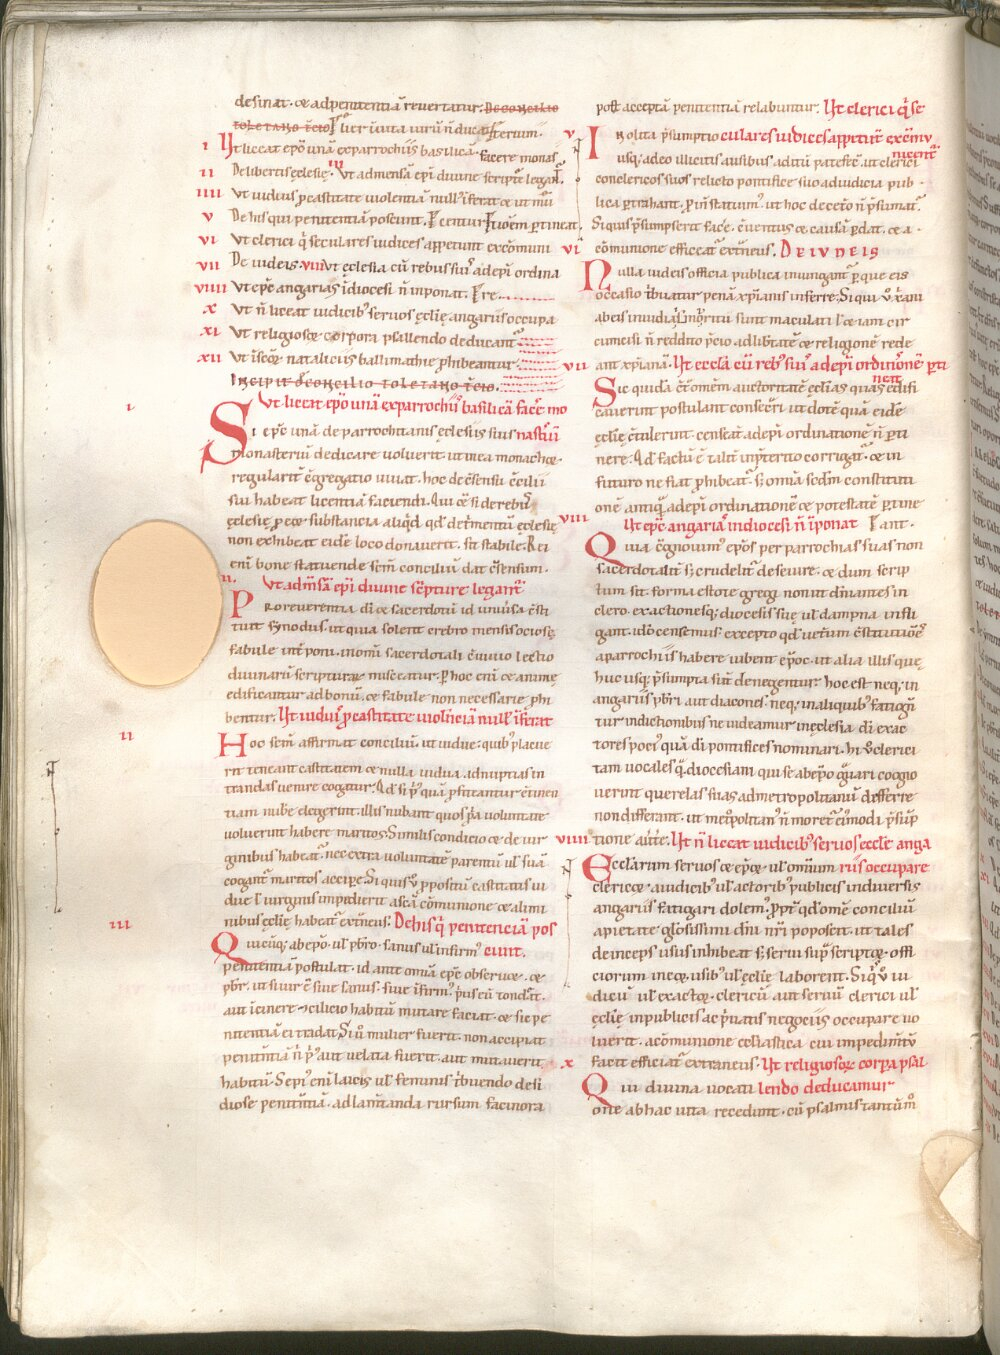 desinat · & ad penitentiā revertatur. De concilio
toletano t̄cio
I Ut liceat ep̄o unā ex parrochiis basilicā facere monas
II De libertis ęclesię. III Ut ad mensā ep̄i divine scripturę legant̄.
IIII Ut viduis p castitate violentiā null' īferat
V De his qui penitentiā poscunt.
VI Ut clerici q̄ seculares iudices appetunt excōmuni
VII De iudeis. VIII Ut ęclesia cū rebus suis ad ep̄i ordina
VIIII Ut ep̄c angarias ī diocesi n̄ inponat.
X Ut n̄ liceat iudicib; servos ęcl̄ię angariis occupa
XI Ut religiosoꝝ corpora psallendo deducant̄
XII Ut ī scōꝝ nataliciis ballimathię phibeantur.
Incipit d̄ concilio toletano t̄cio.
I. Ut liceat ep̄o unā ex parrochiis basilicā facē mo
Si ep̄c unā de parrochianis ęclesiis suis nast̄iū
monasteriū dedicare voluerit ut in ea monachoꝝ
regularit̄ c̄gregatio vivat. hoc de c̄sensu c̄cilii
sui habeat licentiā faciendi. Qui &si de reb;
ęclesię p eoꝝ substancia aliqd qd det̄mentū ęclesię
non exhibeat eidē loco donaverit. sit stabile. Rei
eni bone statuende sc̄m conciliū dat c̄sensum.
II. Ut ad m̄sā ep̄i divine sc̄pture legant̄
Pro reverentia dī & sacerdotū id univ̄sa c̄sti
tuit synodus. ut quia solent crebro mensis ociosę
fabule int̄poni. in om̄i sacerdotali c̄vivio lectio
divinarū scripturaꝝ misceatur. P hoc enī & animę
edificantur ad bonū. & fabule non necessarie phi
bentur. Ut viduis p castitate violn̄ciā null' īferat
II Hoc sc̄m affirmat conciliū. ut vidue. quib; placue
rit teneant castitatem & nulla vidua ad nuptias in
trandas venire cogatur. Qd si p'quā pfiteantur c̄tinen
tiam nub̄e elegerint. illis nubant quos ppa voluntate
voluerint habere maritos. Similis condicio & de vir
ginibus habeat̄. nec extra voluntatē parentū ul' suā
cogant̄ maritos accipe. Si quis v̊ ppositū castitatis vi
due l' virginis impedierit a sc̄a cōmunione & a limi
nibus ęcl̄ię habeat̄ extneus. De his q̄ penitenciā pos
III Quicūq; ab ep̄o ul' pbr̄o. sanus ul' infirm' cunt.
penitentiā postulat. id ante omīa ep̄c observet. &
pbr̄. ut si vir ē sive sanus. sive īfirm'. p'us eū tondeat.
aut ī cinere & cilicio habitū mutare faciat. & sic pe
nitentiā ei tradat. Si v̊ mulier fuerit. non accipiat
penitn̄tiā n̄ p'aut velata fuerit. aut mutaverit
habitū. Sepi' enī laicis ul' feminis t̄buendo desi
diose penitn̄tiā. ad lam̄tanda rursum facinora
post acceptā penitentiā relabuntur. Ut clerici q̄ se
V Inolita p̄sumptio culares iudices appetunt excōmu
usq; adeo illicitis ausibus aditū patefec̄. ut clerici nicent̄
conclericos suos relicto pontifice suo ad iudicia pub
lica ptrahant. pin̄ statuim'. ut hoc de cet̄o n̄ p̄sumat̄.
Si quis p̄sumpserit facē. & ventus & causā pdat. & a
VI cōmunione efficiat̄ extneus. De iudeis
Nulla iudeis officia publica iniungant̄. p que eis
occasio t̄buatur penā xp̄ianis inferre. Si qui v̊ xp̄iani
ab eis in iudaismo ritu sunt maculati l' & iam cir
cumcisi n̄ reddito pcio ad libtatē & religionē rede
VII ant xp̄ianā. Ut eccl̄a cū reb; suis ad ep̄i ordinōnē pti
Sic quidā c̄t omēm auctoritatē ęcl̄ias quas edifi neat
caverint postulant consec̄ri ut dotē quā eidē
ęcl̄ię c̄tulerint. censeat̄ ad ep̄i ordinationē n̄ pti
nere. Qd factū & talit̄ inp̄terito corrigat̄. & in
futuro ne fiat phibeat̄. s; omīa sc̄dm constituti
onē antiq̄ ad ep̄i ordinationē & potestatē ptine
VIII Ut ep̄c angarias in diocesi n̄ īponat ant.
Quia c̄gnovim' ep̄os per parrochias suas non
sacerdotalit̄ s; crudelit̄ desevire. & dum scrip
tum sit. forma estote gregi non ut dn̄antes in
clero. exactionesq; diocesi suę ul' dampna infli
gant. idō censemus. excepto qd vet̄um c̄stitutiōes
a parrochiis habere iubent ep̄oc. ut alia illis quę
huc usq; p̄sumpta sūt denegentur hoc est neq; in
angariis pbr̄i aut diacones. neq; in aliquib; fatigen̄
tur indictionibus ne videamur in ęclesia dī exac
tores poci' quā dī pontifices nominari. Hi v̊ clerici
tam vocales q̄ diocesiani qui se ab ep̄o gravari cogno
verint querelas suas ad metropolitanū defferre
non differant. ut met̄politan' n̄ moret̄ ej'modi p̄sūp
VIIII tione Ut n̄ liceat iudicib; servos eccl̄ę anga
Ecclarum servos & ep̄oꝝ ul' omnium riis occupare
clericoꝝ. a iudicib; ul' actorib; publicis in diversis
angariis fatigari dolem'. ppt̄ qd omē conciliū
a pietate glōsissimi dn̄i nr̄i poposcit. ut tales
deinceps ausus inhibeat s; servi sup̄scriptoꝝ offi
ciorum in eoꝝ usib; ul' ęcl̄ię laborent. Si q̄s v̊ iu
dicū ul' exactoꝝ. clericū aut servū clerici ul'
ęcl̄ię in publicis ac p̄vatis negociis occupare vo
luerit. a cōmunione ecl̄iastica cui impedim̄tū
X facit efficiat̄ extraneus. Ut religiosoꝝ corpa psal
Qui divina vocati lendo deducamur
one ab hac vita recedunt. cū psalmis tantūm̊